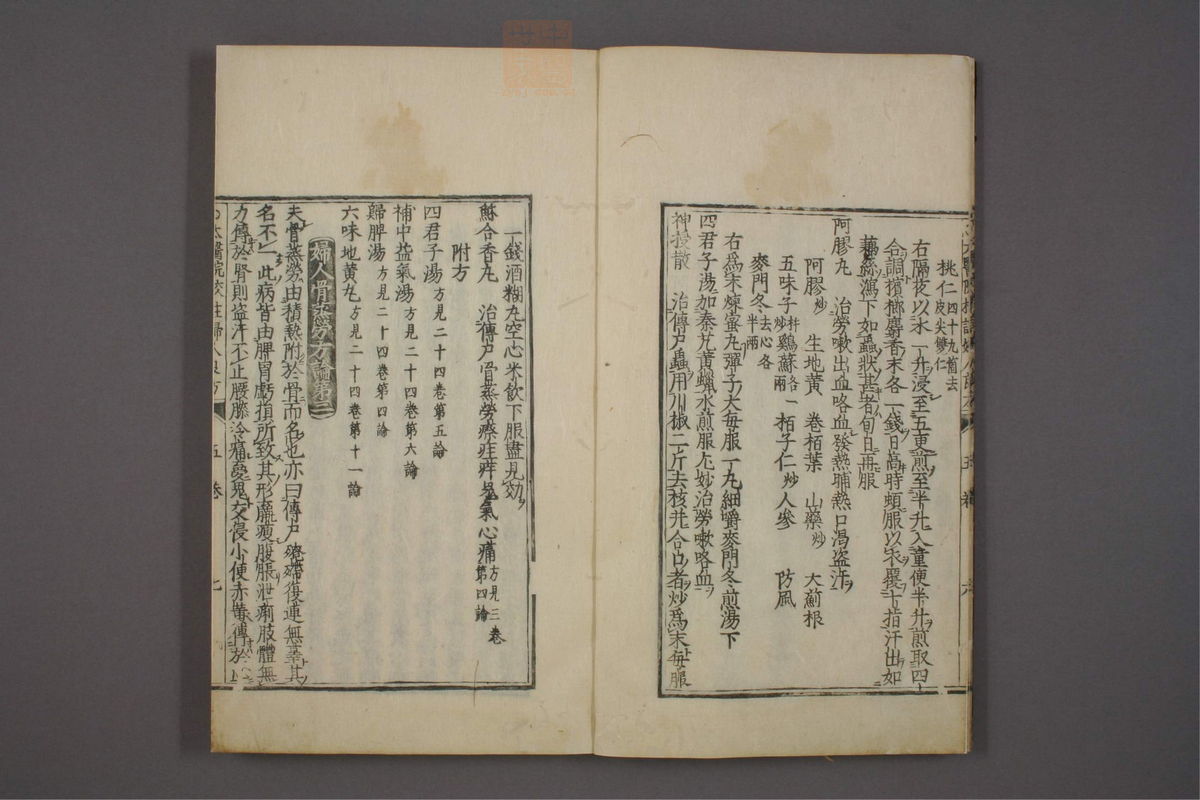 桃仁四十九箇去皮尖雙仁
右隔夜以水一升浸至五更煎至半升入童便半升煎取四
合調檳榔麝香末各一錢日高時頓服以衣覆十指汗出如
藕絲瀉下如蟲狀甚者旬日再服
阿膠丸 治勞嗽出血咯血發熱晡熱口渴盜汗
阿膠炒 生地黃 卷栢葉 山藥炒 大薊根
五味子杵炒 雞蘇各一兩 栢子仁炒 人參 防風
麥門冬去心各半兩
右爲末煉蜜丸彈子大每服一丸細嚼麥門冬煎湯下
四君子湯加秦艽黃蠟水煎服尤妙治勞嗽咯血
神授散 治傳尸蟲用川椒二斤去核并合口者炒爲末每服
一錢酒糊丸空心米飲下服盡見効
蘇合香丸 治傳尸骨蒸勞瘵疰痒鬼氣心痛方見三卷第四論
附方
四君子湯方見二十四卷第五論
補中益氣湯方見二十四卷第六論
歸脾湯方見二十四卷第四論
六味地黃丸方見二十四卷第十一論
婦人骨蒸勞方論第三
夫骨蒸勞由積熱附於骨而名也亦曰傳尸殗殜復連無辜其
名不一此病皆由脾胃虧損所致其形羸瘦腹脹泄痢肢體無
力傳於腎則盜汗不止腰膝冷痛夢鬼交侵小便赤黃傳於心
五卷
七